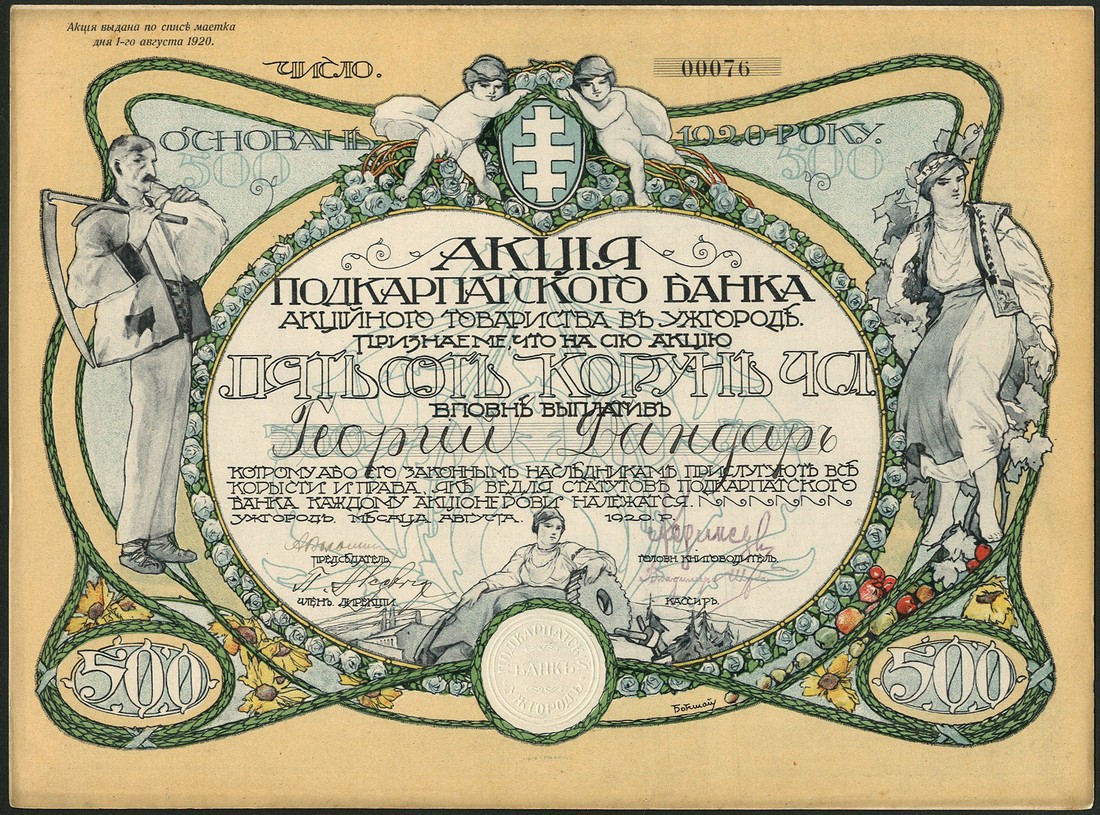 Акція выдана по списѣ маетка
дня 1-го августа 1920.
ЧИСЛО.
00076
ОСНОВАНЪ 1920 РОКУ.
500 500
АКЦІЯ
ПОДКАРПАТСКОГО БАНКА
АКЦІЙНОГО ТОВАРИСТВА ВЪ УЖГОРОДѢ.
ПРИЗНАЕМЕ, ЧТО НА СІЮ АКЦІЮ
ПЯТЬСОТЪ КОРУНЪ ЧСЛ
ВПОВНѢ ВЫПЛАТИВЪ
Георгий Дандаръ
КОТРОМУ АБО ЕГО ЗАКОННЫМЪ НАСЛѢДНИКАМЪ ПРИСЛУГУЮТЬ ВСѢ
КОРЫСТИ И ПРАВА, ЯКѢ ВЕДЛЯ СТАТУТОВЪ ПОДКАРПАТСКОГО
БАНКА КАЖДОМУ АКЦІОНЕРОВИ НАЛЕЖАТСЯ.
УЖГОРОДЪ, МѢСЯЦА АВГУСТА. 1920 Р.
ПРЕДСѢДАТЕЛЬ
ГОЛОВН. КНИГОВОДИТЕЛЬ.
ЧЛЕНЪ ДИРЕКЦІИ.
КАССИРЪ.
500
ПОДКАРПАТСКІЙ
БАНКЪ
УЖГОРОДЪ
500
Бокшай